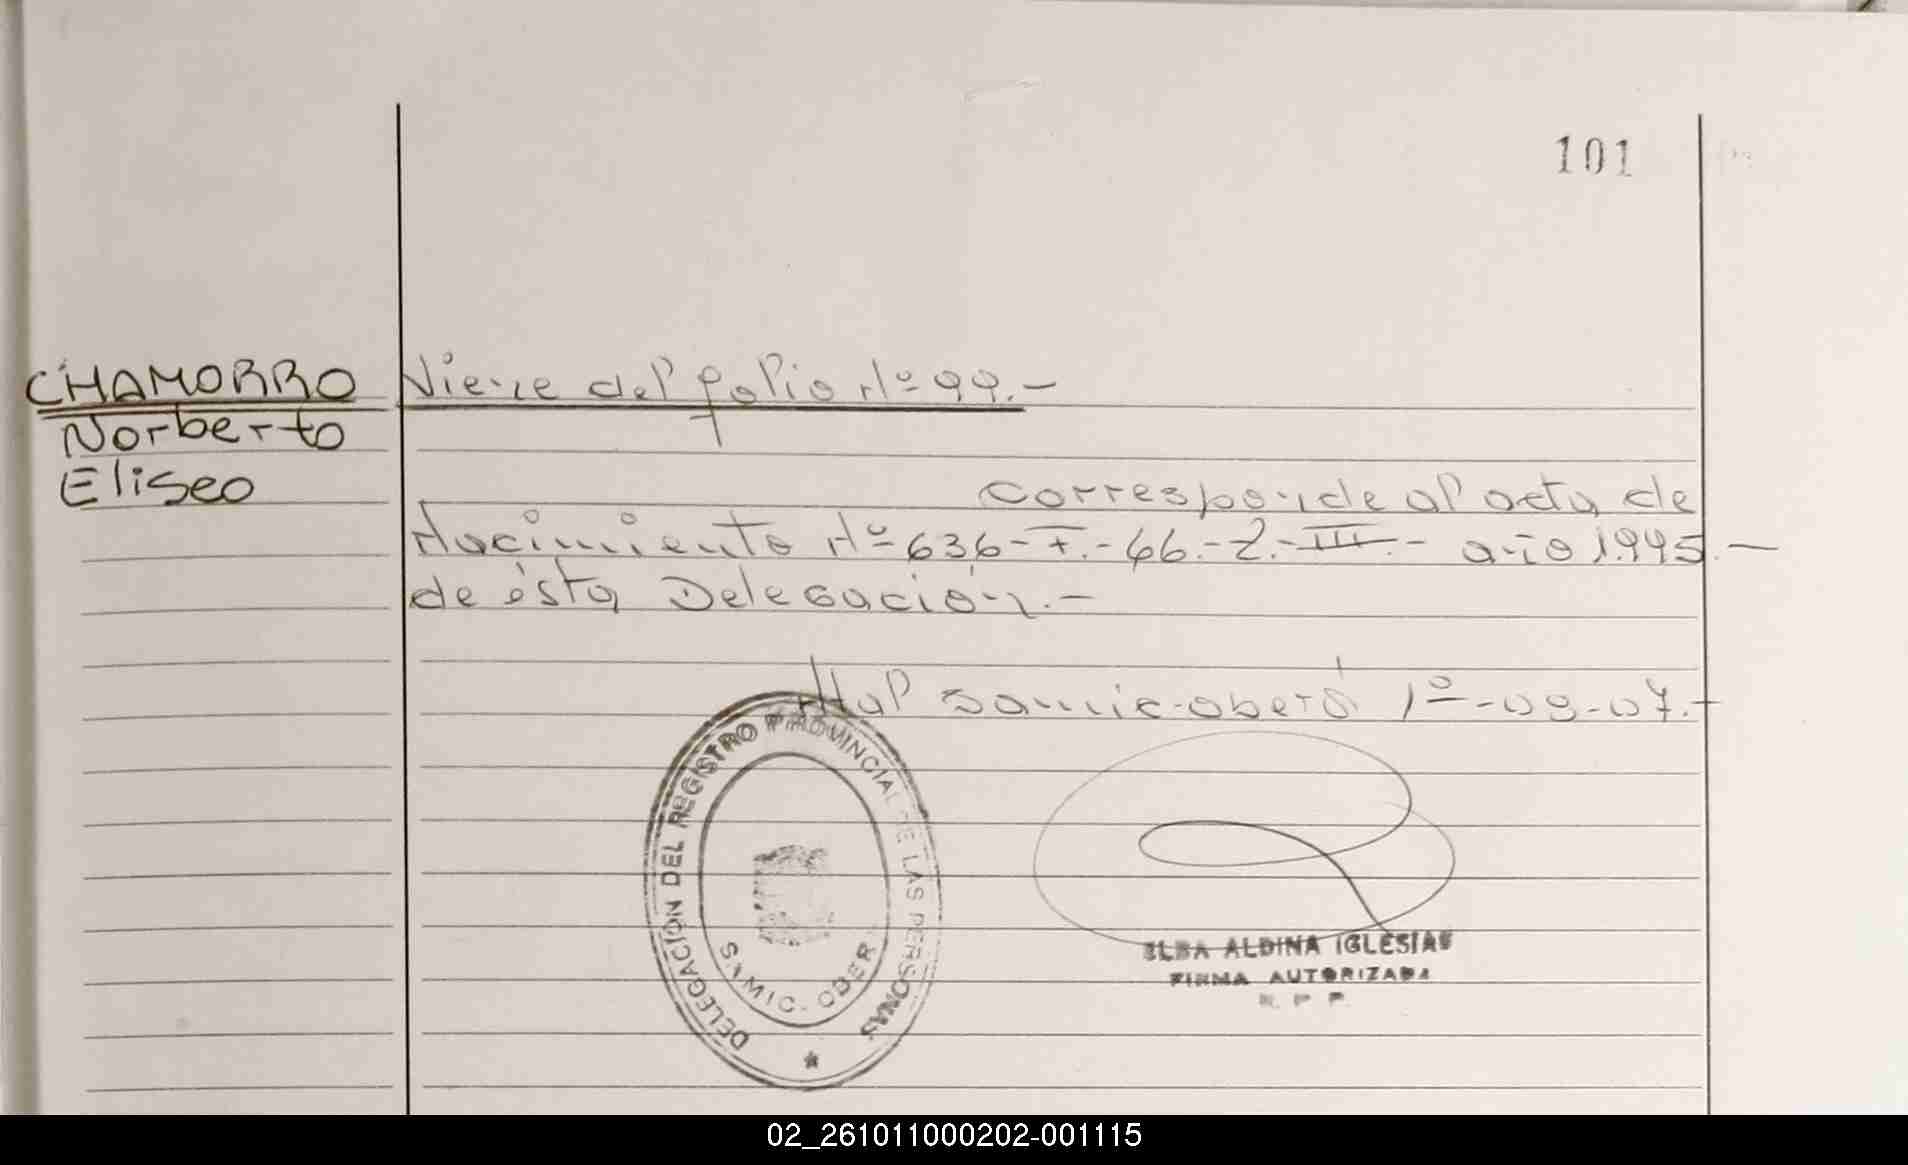 101
CHAMORRO Viene del folio Nº 99.-
Norberto
Eliseo
corresponde al acta de
Nacimiento Nº 636-T.-66.-Z.-III.- año 1.995.-
de ésta Delegación.-
Hal Samic-oberá 1º-08-07.-
DELEGACIÓN DEL REGISTRO PROVINCIAL DE LAS PERSONAS
SAMIC - OBERA
ELBA ALDINA IGLESIAS
FIRMA AUTORIZADA
R. P. P.
02_261011000202-001115